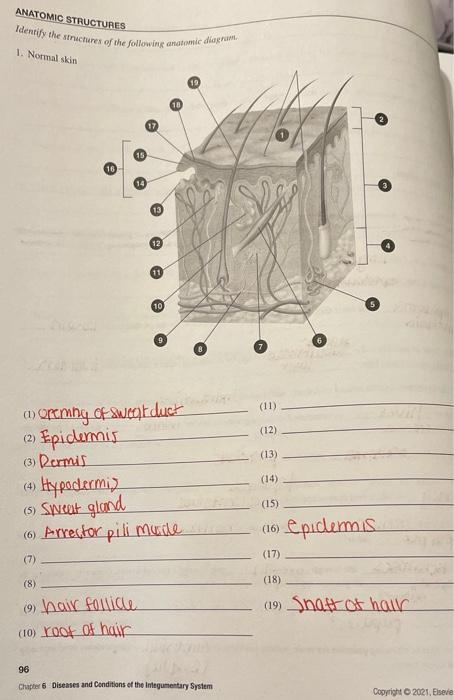 ANATOMIC STRUCTURES
Identify the structures of the following anatomic diagram.
1. Normal skin
19
18
17
1
2
15
16
14
3
13
12
4
11
10
5
9
6
8
7
(1) opening of sweat duct
(2) Epidermis
(3) Dermis
(4) Hypodermis
(5) Sweat gland
(6) Arrestor pili muscle
(7)
(8)
(9) hair follicle
(10) root of hair
(11)
(12)
(13)
(14)
(15)
(16) epidermis
(17)
(18)
(19) Shaft of hair
96
Chapter 6 Diseases and Conditions of the Integumentary System
Copyright © 2021, Elsevie